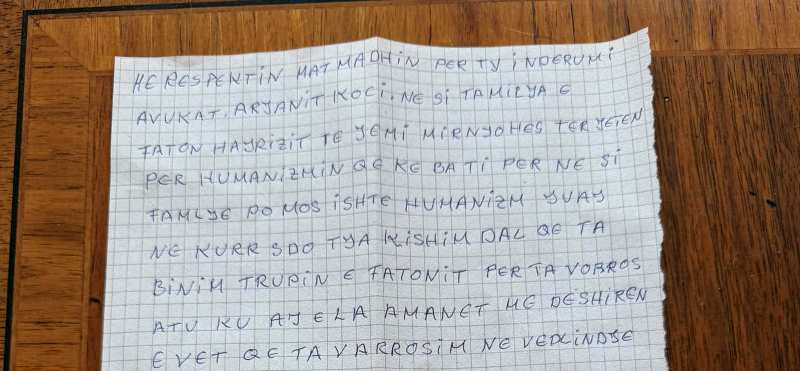 ME RESPEKTIN MAT MADHIN PER TY I NDERUMI
AVUKAT, ARJANIT KOCI. NE SI FAMILJA E
FATON HAJRIZIT TE JEMI MIRNJOHES TER JETEN
PER HUMANIZMIN QE KE BA TI PER NE SI
FAMLJE PO MOS ISHTE HUMANIZM JUAJ
NE KURR SDO TJA KISHIM DAL QE TA
BINIM TRUPIN E FATONIT PER TA VORROS
ATU KU AJ E LA AMANET ME DESHIREN
E VET QE TA VARROSIM NE VEDLINDJE